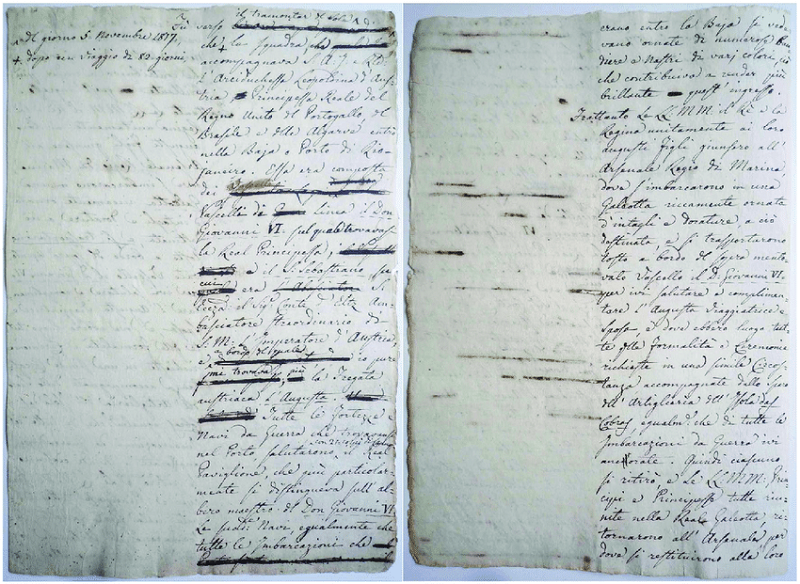 il tramontar del sole
Al giorno 5. Novembre 1817.
dopo un viaggio di 82 giorni
In verso
che la Squadra, che
accompagnava S. A. I. e R.
l'Arciduchessa Leopoldina d'Aus
tria Principessa Reale del
Regno Unito di Portogallo, del
Brasile e dell' Algarva entrò
nella Baja o Porto di Rio
Janeiro. Essa era composta
dei
Vascelli di linea il Don
Giovanni VI. sul quale trovavasi
la Real Principessa,
e il S. Sebastiano, su
cui era
il Sigr. Conte d'Eltz Am
basciatore Straordinario di
S. M. l'Imperatore d'Austria,
a bordo del quale
io pure
mi trovava, più la Fregata
austriaca l'Augusta
Tutte le Fortezze e
Navi da Guerra che trovavansi
nel Porto, salutarono il Real
Paviglione, che più particolar-
mente si distingueva sull'al-
bero maestro del Don Giovanni VI.
Le sudte. Navi, egualmente che
tutte le imbarcazioni che
erano entro la Baja si vede
vano ornate di numerose Ban
diere e Nastri di varj colori, ciò
che contribuiva a render più
brillante quest' ingresso.
Frattanto Le LL. MM. il Re e la
Regina unitamente ai loro
augusti figli giunsero all'
Arsenale Regio di Marina
dove s'imbarcarono in una
Galeotta riccamente ornata
d'intagli e dorature, a ciò
destinata, e si trasportarono
tosto a bordo del sopra mento-
vato Vascello il D. Giovanni VI.
per ivi salutare e complimen-
tare l'Augusta Viaggiatrice e
Sposa, e dove ebbero luogo tut-
te le formalità e Ceremonie
richieste in una simile Circos-
tanza accompagnate dallo Sparo
dell' Artiglieria dell' Isola das
Cobras, egualmte. che di tutte le
Imbarcazioni da Guerra ivi
ancorate. Quindi ciascuno
si ritirò, e le LL. MM. Prin-
cipi e Principesse tutte riu-
nite nella Real Galeotta, ri-
tornarono all' Arsenale, per
dove si restituirono alla loro